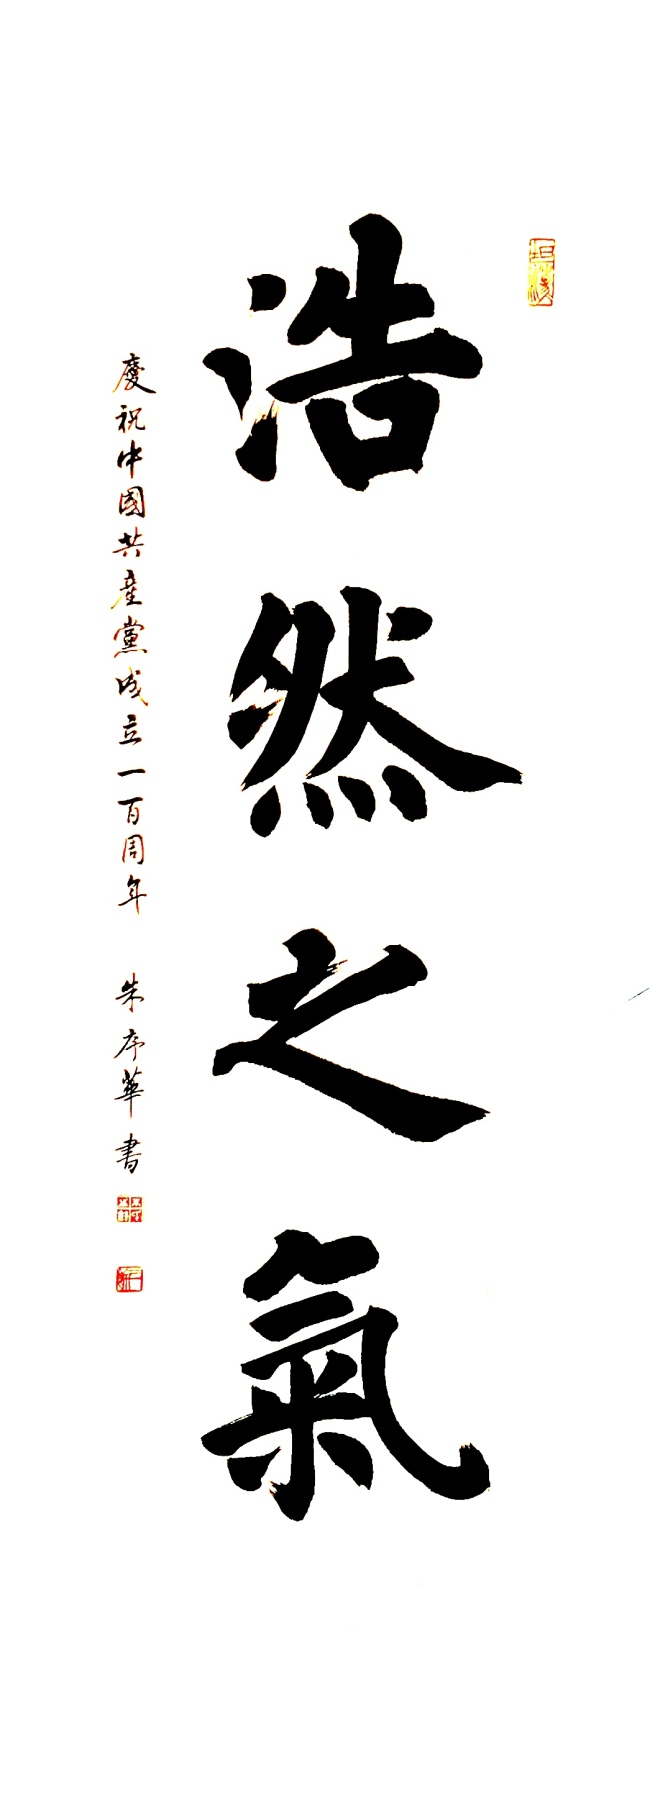 浩然之氣
慶祝中國共產黨成立一百周年 朱序華書